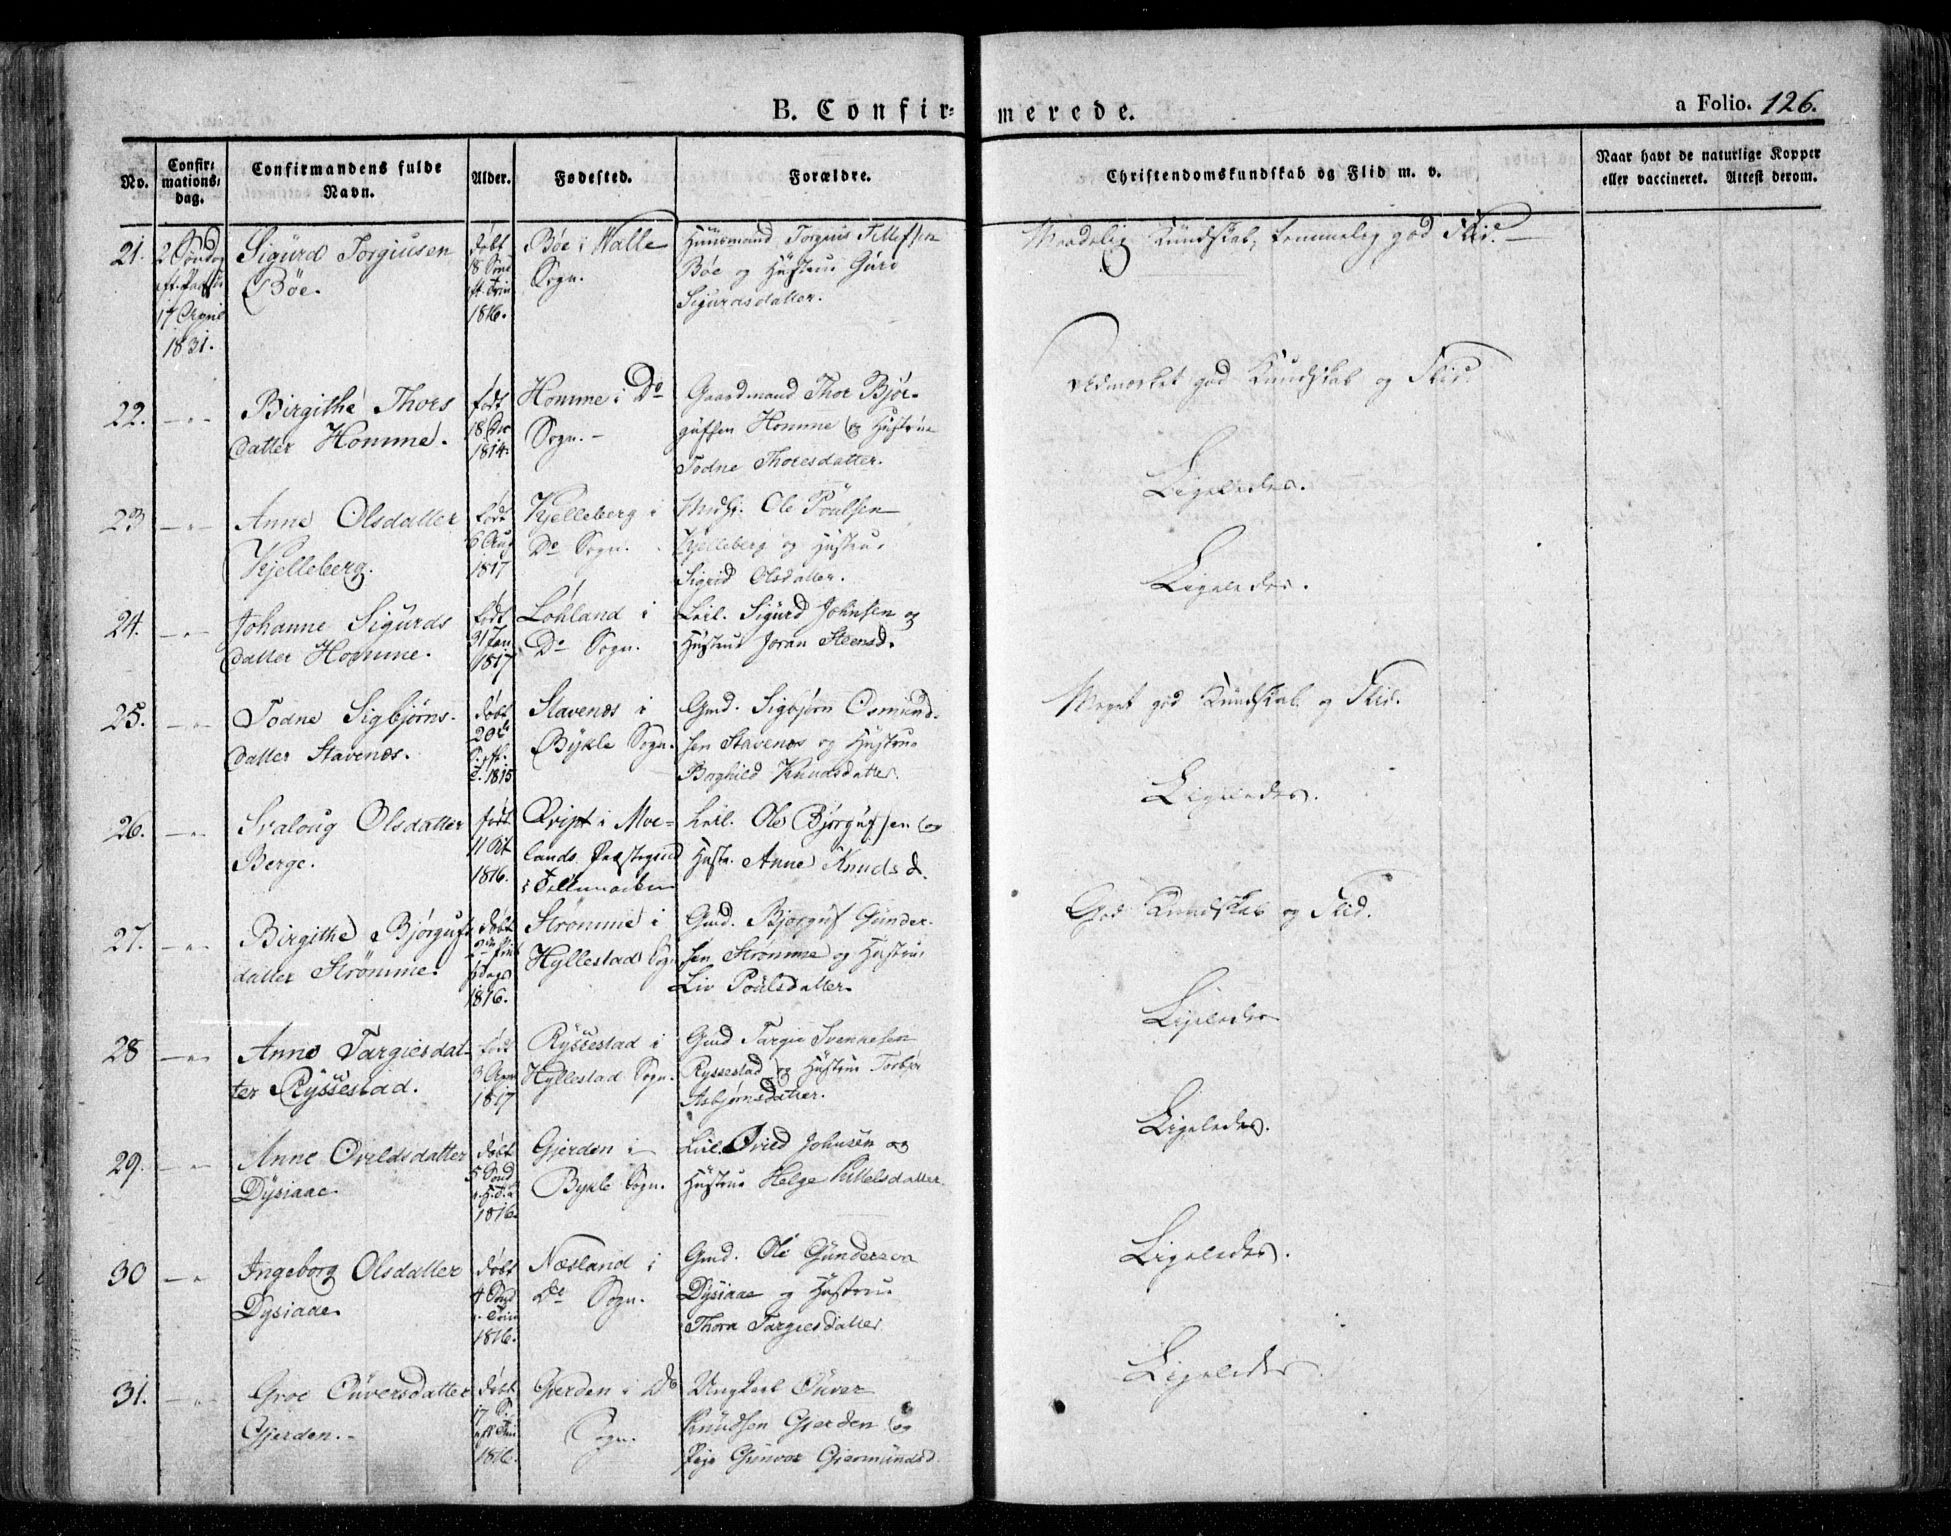 B. Confir-
merede.
a Folio. 126.
No.
Confir-
mations-
dag.
Confirmandens fulde
Navn.
Alder.
Fødested.
Forældre.
Christendomskundskab og Flid m. v.
Naar havt de naturlige Kopper
eller vaccineret. Attest derom.
21.
2 Søndag
17 April
1831.
Sigurd Torgiusen
Bøe.
døbt
18 Sønd
eft. Trin
1816.
Bøe i Walle
Sogn.
Huusmand Torgius Tellefsen
Bøe og Hustrue Guro
Sigurdsdatter.
Maadelig Kundskab, temmelig god Flid. —
22.
Birgithe Thors
datter Homme.
født
18 Dec
1814.
Homme i Do
Sogn. -
Gaardmand Thor Bjør-
gufsen Homme og Hustrue
Todne Thoresdatter.
Udmærket god Kundskab og Flid.
23
Anne Olsdatter
Kjelleberg.
født
6 Aug
1817
Kjelleberg i
Do Sogn.
Ole Poulsen
Kjelleberg og Hustrue
Sigrid Olsdatter.
Ligeledes.
24.
Johanne Sigurds
datter Homme.
født
31 Jan
1817
Løhland i
Do Sogn.
Leil. Sigurd Johnsen og
Hustrue Joran Steensd.
Ligeledes.
25.
Todne Sigbjørns-
datter Stavenæs.
døbt
1815
Stavenæs i
Bykle Sogn.
Gmd. Sigbjørn Osmund-
sen Stavenæs og Hustrue
Baghild Knudsdatter.
Meget god Kundskab og Flid.
26.
Svaloug Olsdatter
Berge.
født
11 Oct
1816.
i Moe-
lands Præstegield
i Tellemarken
Leil. Ole Bjørgufsen og
Hustr. Anne Knudsd.
Ligeledes.
27.
Birgithe Bjørgufs
datter Strømme.
døbt
1816.
Strømme i
Hyllestad Sogn
Gmd. Bjørguf Gunder-
sen Strømme og Hustrue
Liv Poulsdatter.
God Kundskab og Flid.
28
Anne Targiesdat-
ter Ryssestad.
født
3 April
1817
Ryssestad i
Hyllestad Sogn.
Gmd Targie Svenkesen
Ryssestad og Hustrue Torbjør
Asbjørnsdatter.
Ligeledes
29.
Anne Øvildsdatter
Dysiaae.
døbt
5 Sønd
1816.
Gjerden i
Bykle Sogn.
Leil. Øvild Johnsen og
Hustrue Helge Kittelsdatter
Ligeledes.
30
Ingeborg Olsdatter
Dysiaae.
døbt
4 Sønd
Trin
1816.
Næsland i
Do Sogn.
Gmd. Ole Gunderson
Dysiaae og Hustrue
Thora Targiesdatter
Ligeledes.
31.
Groe Ouversdatter
Gjerden. -
døbt
17 S.
eft Trin
1816.
Gjerden i Do
Sogn.
Ungkarl Ouver
Knudsen Gjerden og
Pige Gunvor Giermundsd.
Ligeledes